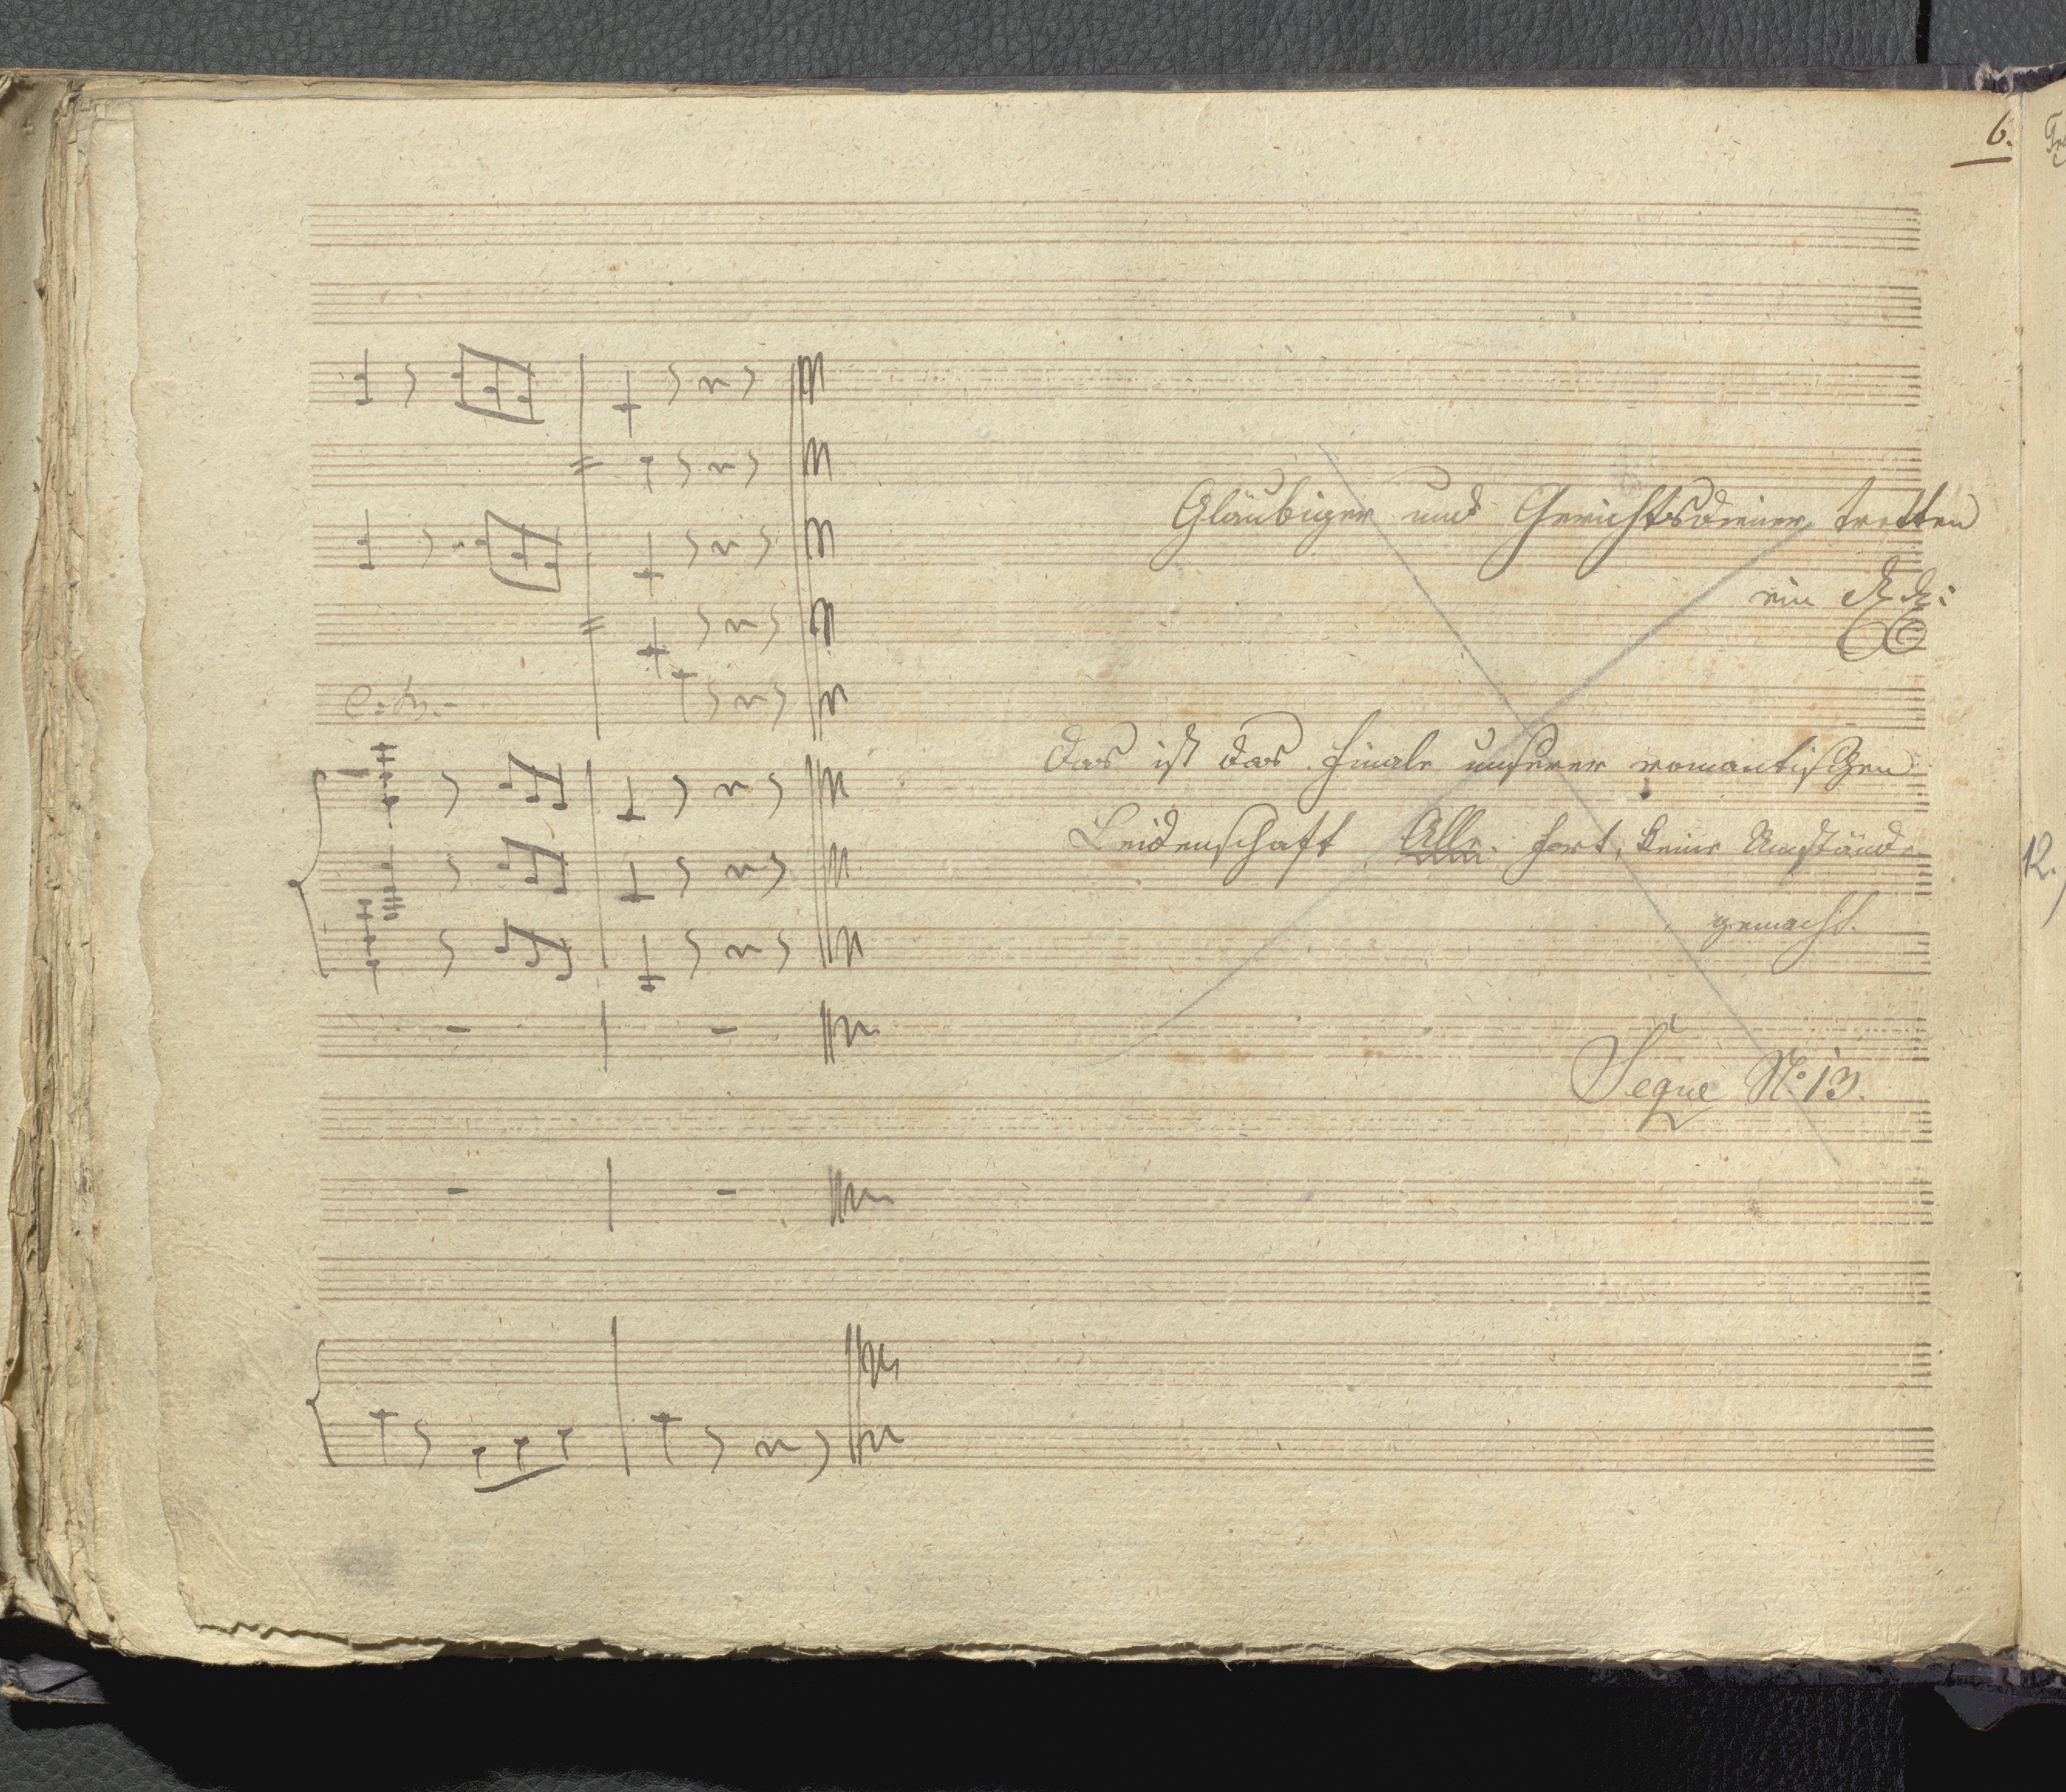 6.
Gläubiger und Gerichtsdiener tretten
ein
Das ist das Finale unserer romantischen
Leidenschaft Alle. fort, keine Umstände
gemacht.
Segue No: 13.
12.